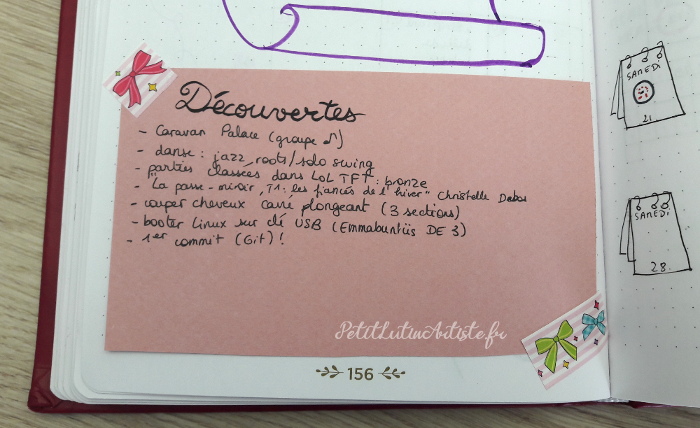 Découvertes
- Caravan Palace (groupe ♫)
- danse : jazz roots/solo swing
- parties classées dans LoL TFT : bronze
- "La passe-miroir, T1 : les fiancés de l'hiver" Christelle Dabos
- couper cheveux carré plongeant (3 sections)
- booter Linux sur clé USB (Emmabuntüs DE 3)
- 1er commit (Git) !
PetitLutinArtiste.fr
156
SAMEDI
21
SAMEDI
28